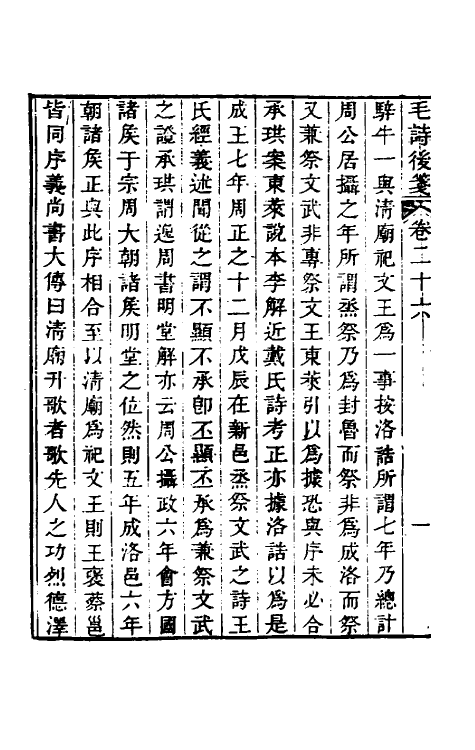 毛詩後箋 卷二十六 一
騂牛一與清廟祀文王爲一事按洛誥所謂七年乃總計
周公居攝之年所謂烝祭乃爲封魯而祭非爲成洛而祭
又兼祭文武非專祭文王東萊引以爲據恐與序未必合
承珙案東萊說本李解近戴氏詩考正亦據洛誥以爲是
成王七年周正之十二月戊辰在新邑烝祭文武之詩王
氏經義述聞從之謂不顯不承卽丕顯丕承爲兼祭文武
之證承珙謂逸周書明堂解亦云周公攝政六年會方國
諸矦于宗周大朝諸矦明堂之位然則五年成洛邑六年
朝諸矦正與此序相合至以清廟爲祀文王則王褒蔡邕
皆同序義尚書大傳曰清廟升歌者歌先人之功烈德澤